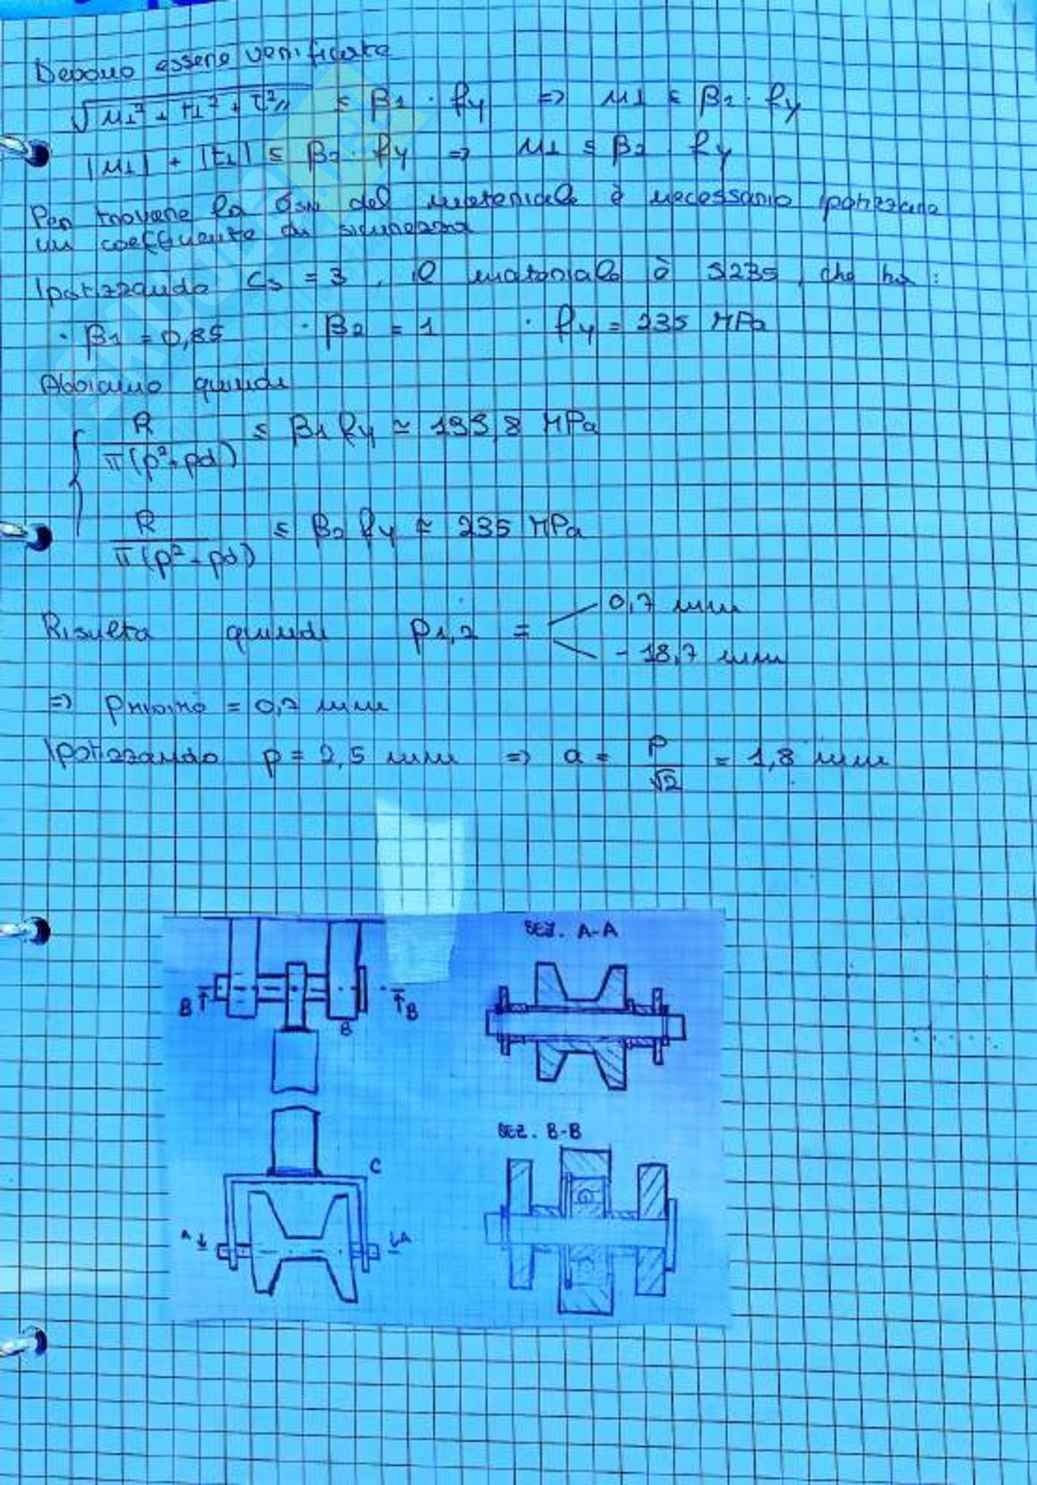 Devono essere verificate
√(n⊥² + t⊥² + τ²//) ≤ β1 · fy ⇒ n⊥ ≤ β1 · fy
|n⊥| + |t⊥| ≤ β2 · fy ⇒ n⊥ ≤ β2 fy
Per trovare la σsn del materiale è necessario ipotizzare
un coefficiente di sicurezza
Ipotizzando Cs = 3, il materiale è S235, che ha:
· β1 = 0,85 · β2 = 1 · fy = 235 MPa
Abbiamo quindi
R / π(p²+pd) ≤ β1 fy ≃ 199,8 MPa
R / π(p²+pd) ≤ β2 fy ≃ 235 MPa
Risulta quindi p1,2 = 0,7 mm
- 18,7 mm
⇒ pminimo = 0,7 mm
Ipotizzando p = 2,5 mm ⇒ a = p/√2 = 1,8 mm
SEZ. A-A
B B
B
SEZ. B-B
C
A A